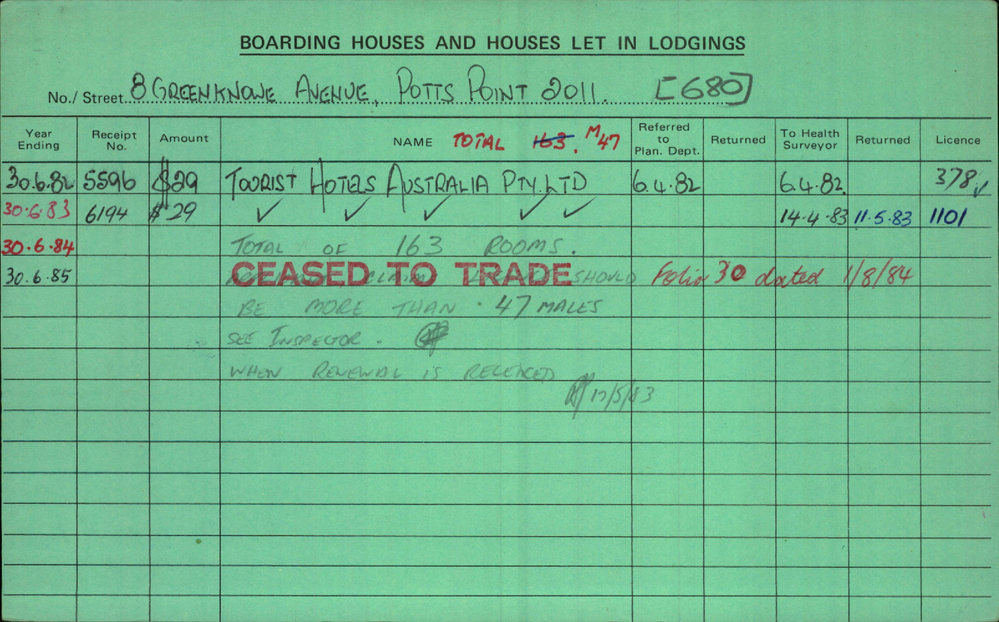 BOARDING HOUSES AND HOUSES LET IN LODGINGS
No./Street 8 GREENKNOWE AVENUE, POTTS POINT 2011. [680]
Year Ending Receipt No. Amount NAME TOTAL 163. M 47 Referred to Plan. Dept. Returned To Health Surveyor Returned Licence
30.6.82 5596 $29 TOURIST HOTELS AUSTRALIA PTY. LTD 6.4.82 6.4.82 378 ✓
30.6.83 6194 $29 ✓ ✓ ✓ ✓ ✓ 14.4.83 11.5.83 1101
30.6.84 TOTAL OF 163 ROOMS.
30.6.85 CEASED TO TRADE CLAIM SHOULD Folio 30 dated 1/8/84
BE MORE THAN 47 MALES
SEE INSPECTOR.
WHEN RENEWAL IS RELEICED